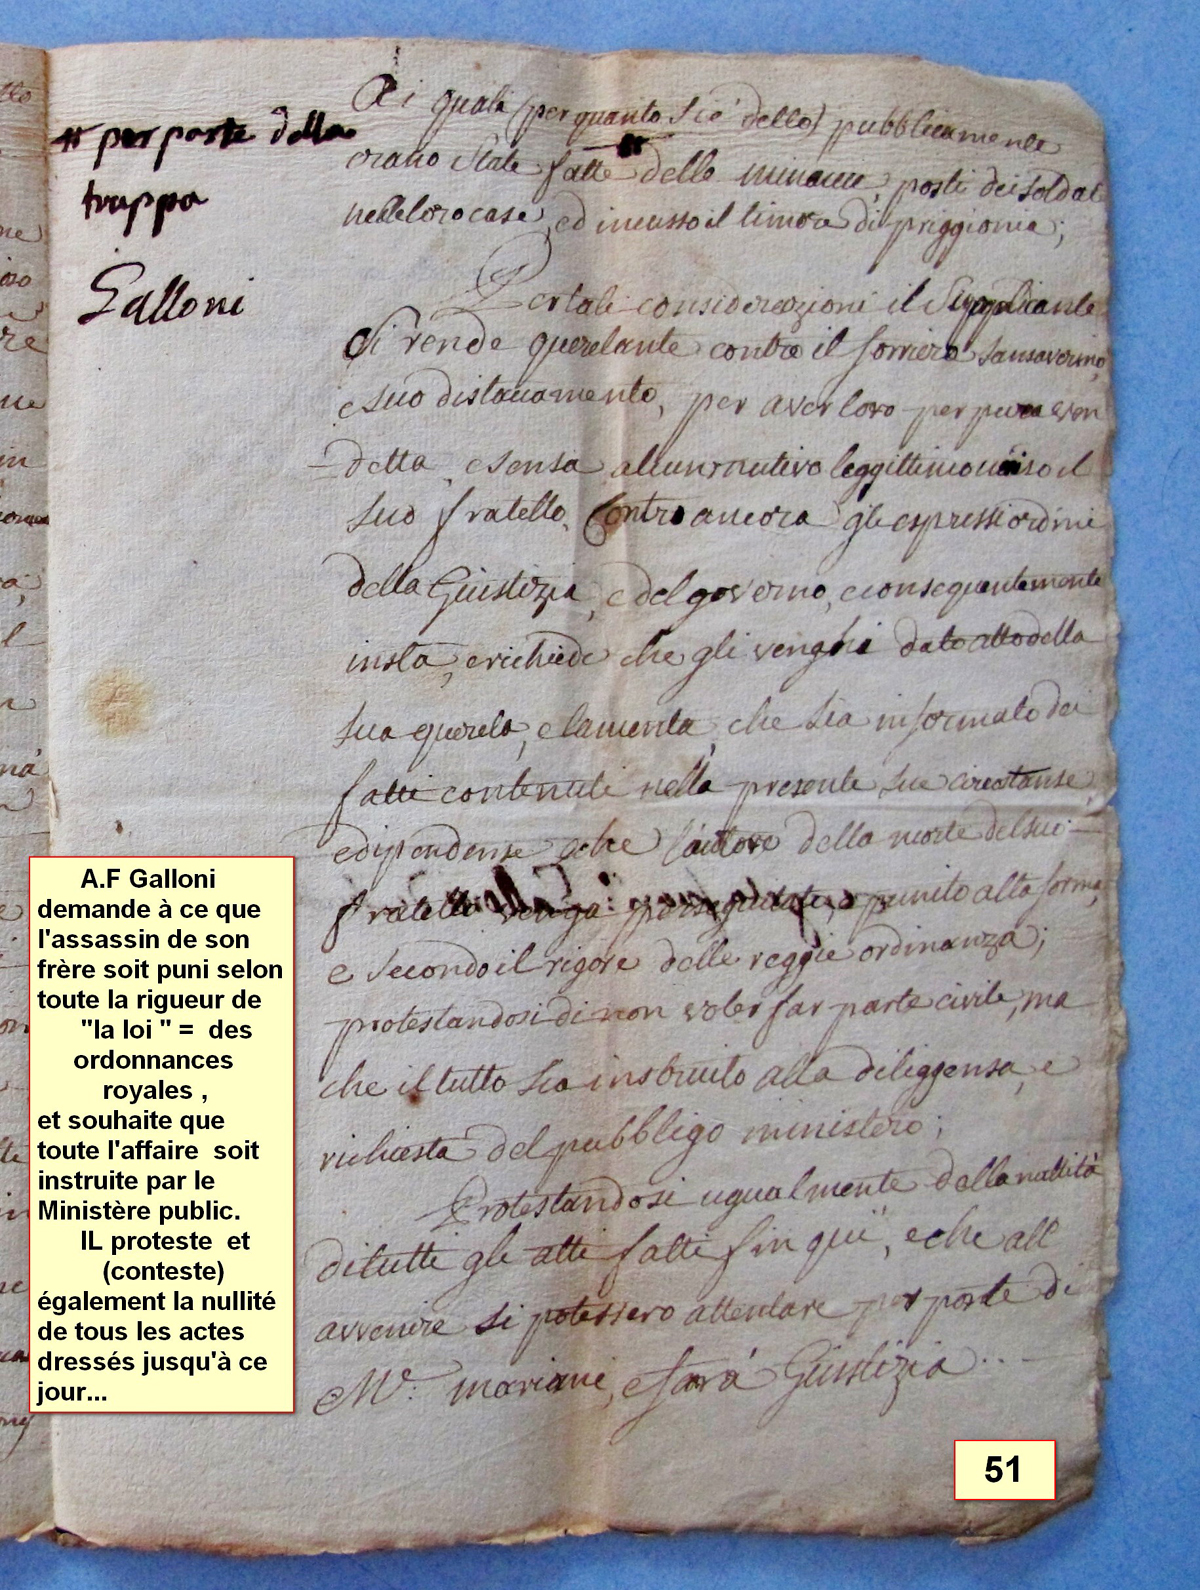 # per parte della
truppa
Galloni
Ai quali (per quanto si è detto) pubblicamente
erano state fatte # delle minacce, posti dei soldati
nelle loro case, ed incusso il timore di priggionia;
Per tali considerazioni il Supplicante
si rende querelante contro il forriere Sansaverino
e suo distaccamento, per aver loro per pura ven
-detta, e sensa alcun mutivo leggittimo uciso il
suo fratello, Contro ancora gli espressi ordini
della Giustizia, e del governo, e consequentemente
insta, e richiede che gli venghi dato atto della
sua querela, e lamenta, che sia informato dei
fatti contenuti nella presente sue circostanse,
e dipendense e che l'autore della morte del suo
fratello venga perseguitato, e punito alla forma,
e secondo il rigore delle reggie ordinanza;
protestandosi di non voler far parte civile, ma
che il tutto sia instruito alla diliggensa, e
richiesta del pubbligo ministero;
Protestandosi ugualmente della nullità
di tutti gli atti fatti fin quì, e che all'
avvenire si potessero attentare per parte di
Mr. mariani, e farà Giustizia...
A.F Galloni
demande à ce que
l'assassin de son
frère soit puni selon
toute la rigueur de
"la loi " = des
ordonnances
royales ,
et souhaite que
toute l'affaire soit
instruite par le
Ministère public.
IL proteste et
(conteste)
également la nullité
de tous les actes
dressés jusqu'à ce
jour...
51